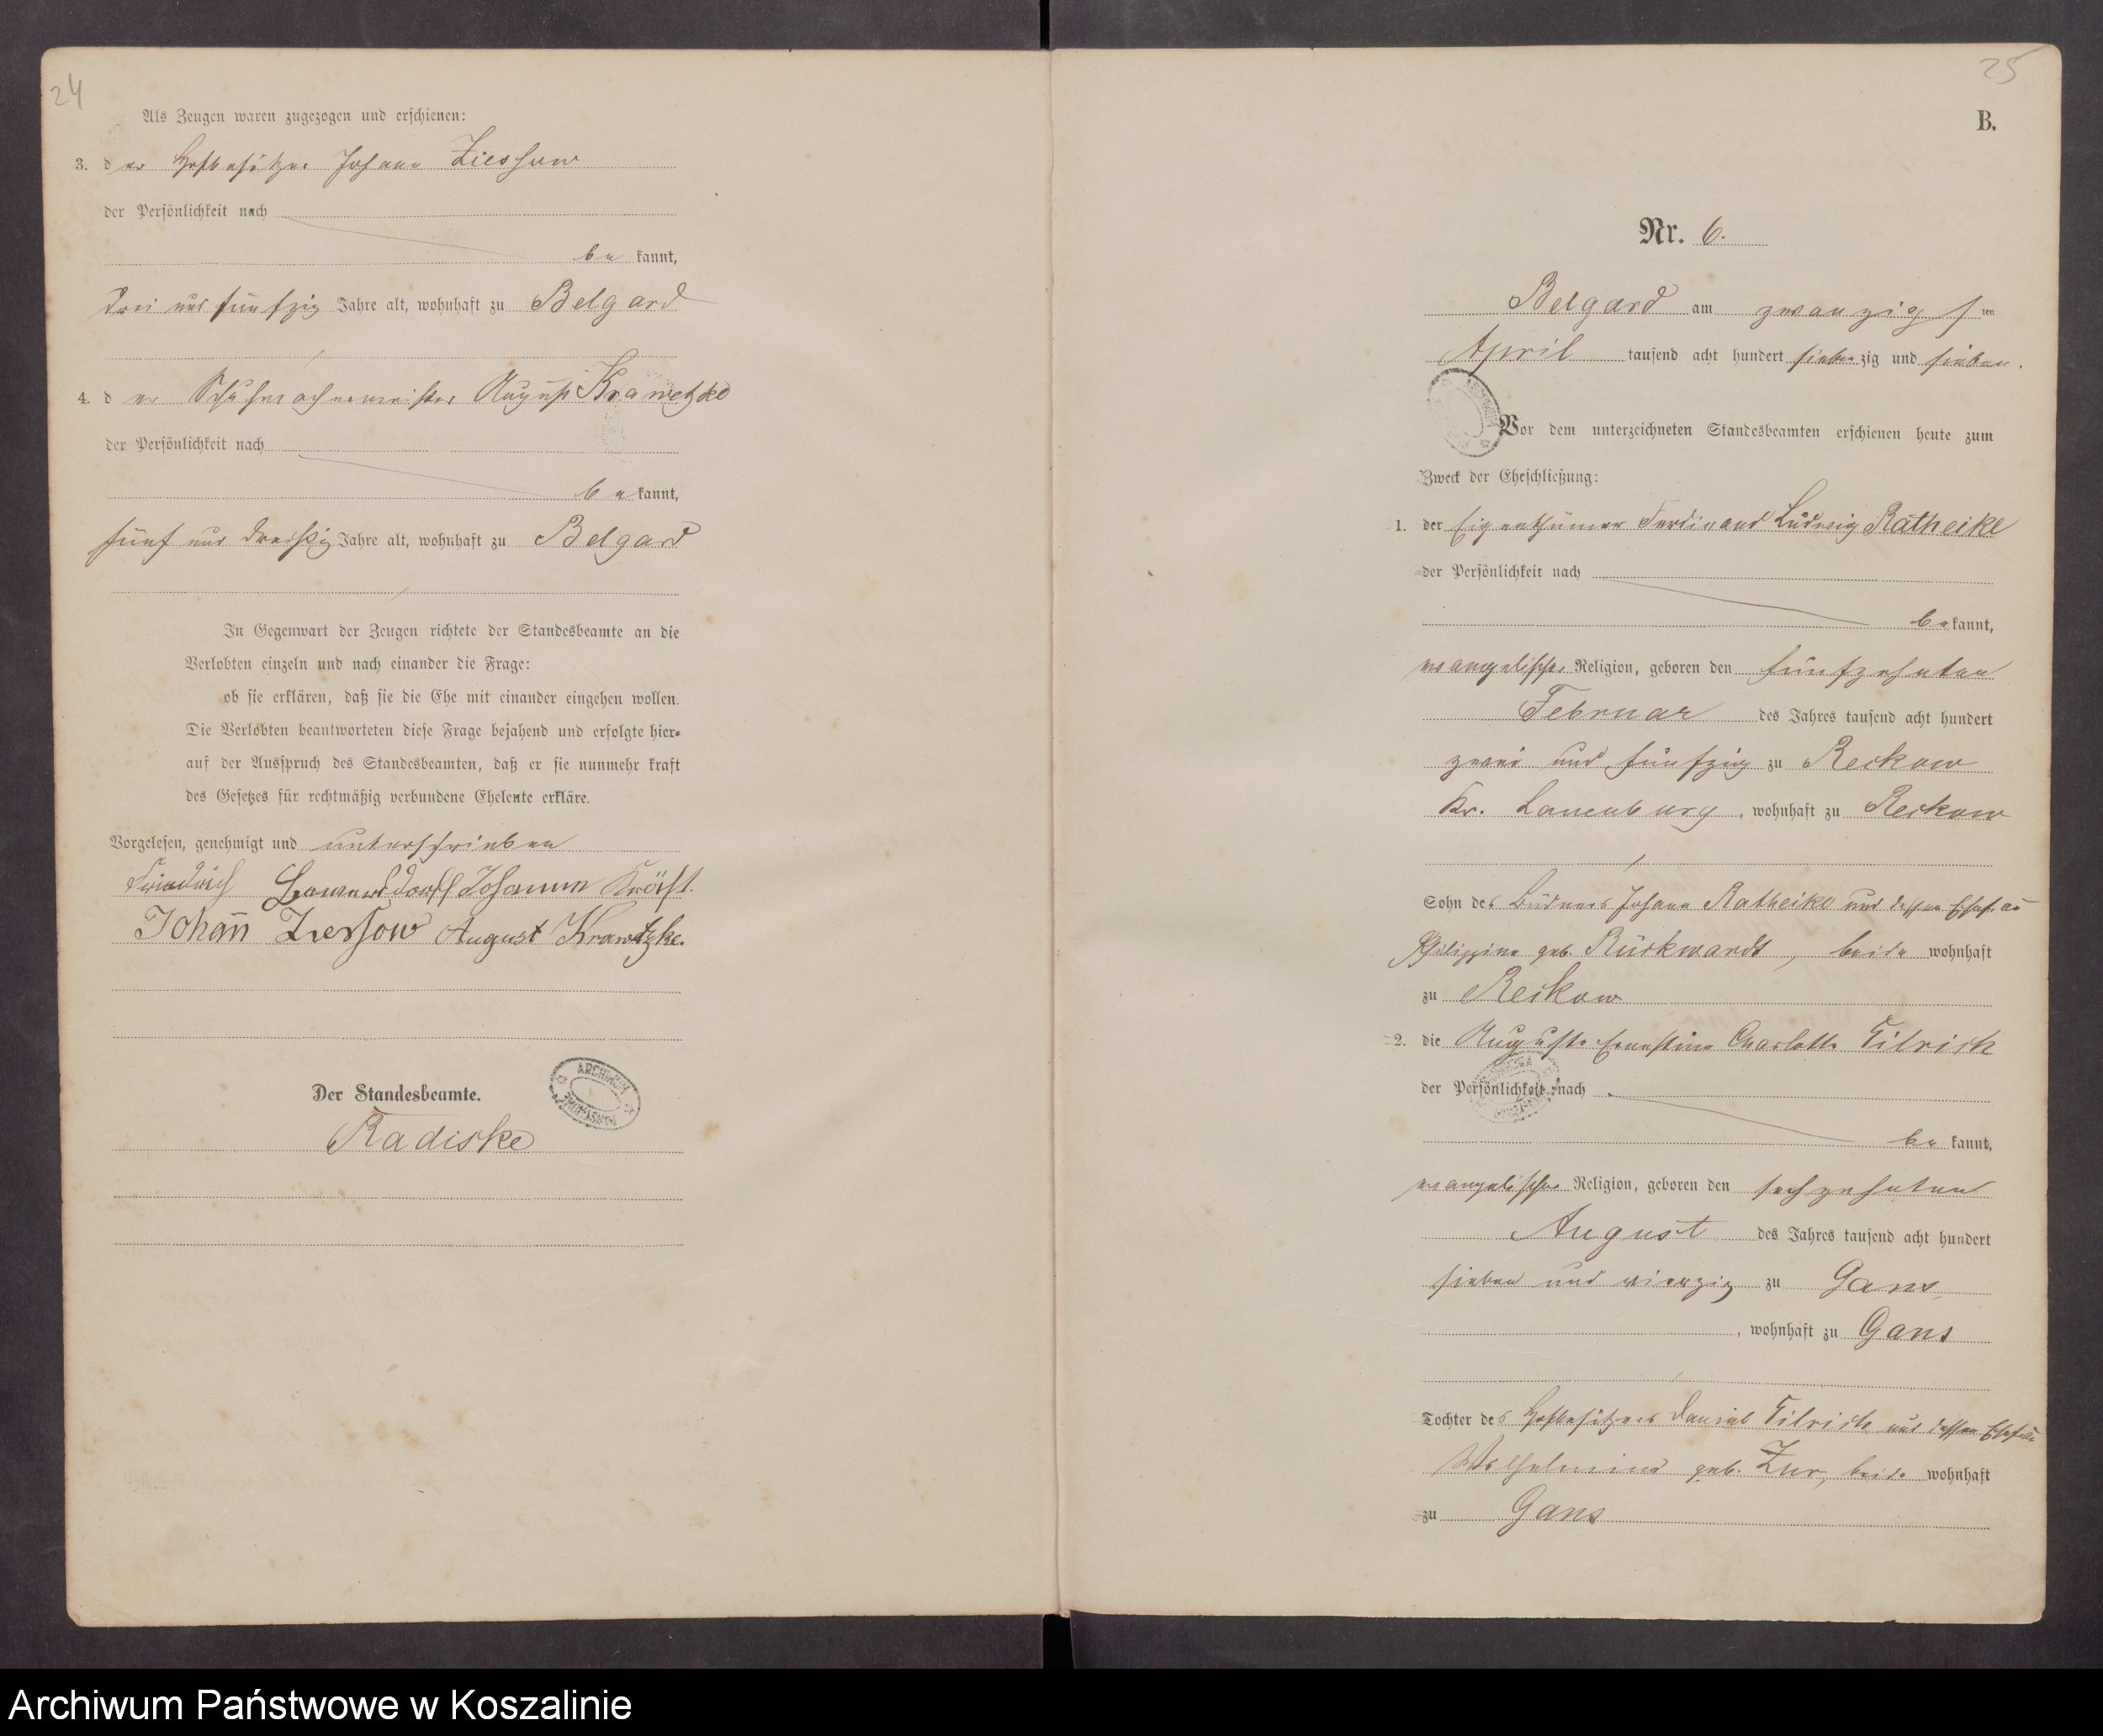 24
Als Zeugen waren zugezogen und erschienen:
3. der Hofbesitzer Johann Ziessow
der Persönlichkeit nach
be kannt,
drei und fünfzig Jahre alt, wohnhaft zu Belgard
4. der Schuhmachermeister August Krawetzke
der Persönlichkeit nach
be kannt,
fünf und dreißig Jahre alt, wohnhaft zu Belgard
In Gegenwart der Zeugen richtete der Standesbeamte an die
Verlobten einzeln und nach einander die Frage:
ob sie erklären, daß sie die Ehe mit einander eingehen wollen.
Die Verlobten beantworteten diese Frage bejahend und erfolgte hier-
auf der Ausspruch des Standesbeamten, daß er sie nunmehr kraft
des Gesetzes für rechtmäßig verbundene Eheleute erkläre.
Vorgelesen, genehmigt und unterschrieben
Friedrich Johann
Johann Ziessow August Krawetzke.
Der Standesbeamte.
ARCHIWUM PAŃSTWOWE
Radiske
25
B.
Nr. 6.
Belgard am zwanzigsten
April tausend acht hundert siebenzig und sieben.
Vor dem unterzeichneten Standesbeamten erschienen heute zum
Zweck der Eheschließung:
1. der Eigenthümer Ferdinand Ludwig Ratheike
der Persönlichkeit nach
be kannt,
evangelischer Religion, geboren den fünfzehnten
Februar des Jahres tausend acht hundert
zwei und fünfzig zu Reckow
Kr. Lauenburg, wohnhaft zu Reckow
Sohn des Büdners Johann Ratheike und dessen Ehefrau
Philippine geb. Rückwardt, beide wohnhaft
zu Reckow
2. die Auguste Ernestine Charlotte Tilrich
der Persönlichkeit nach
be kannt,
evangelischer Religion, geboren den sechzehnten
August des Jahres tausend acht hundert
sieben und vierzig zu Gans
, wohnhaft zu Gans
Tochter des Hofbesitzers Daniel Tilrich und dessen Ehefrau
Wilhelmine geb. Zur, beide wohnhaft
zu Gans
Archiwum Państwowe w Koszalinie